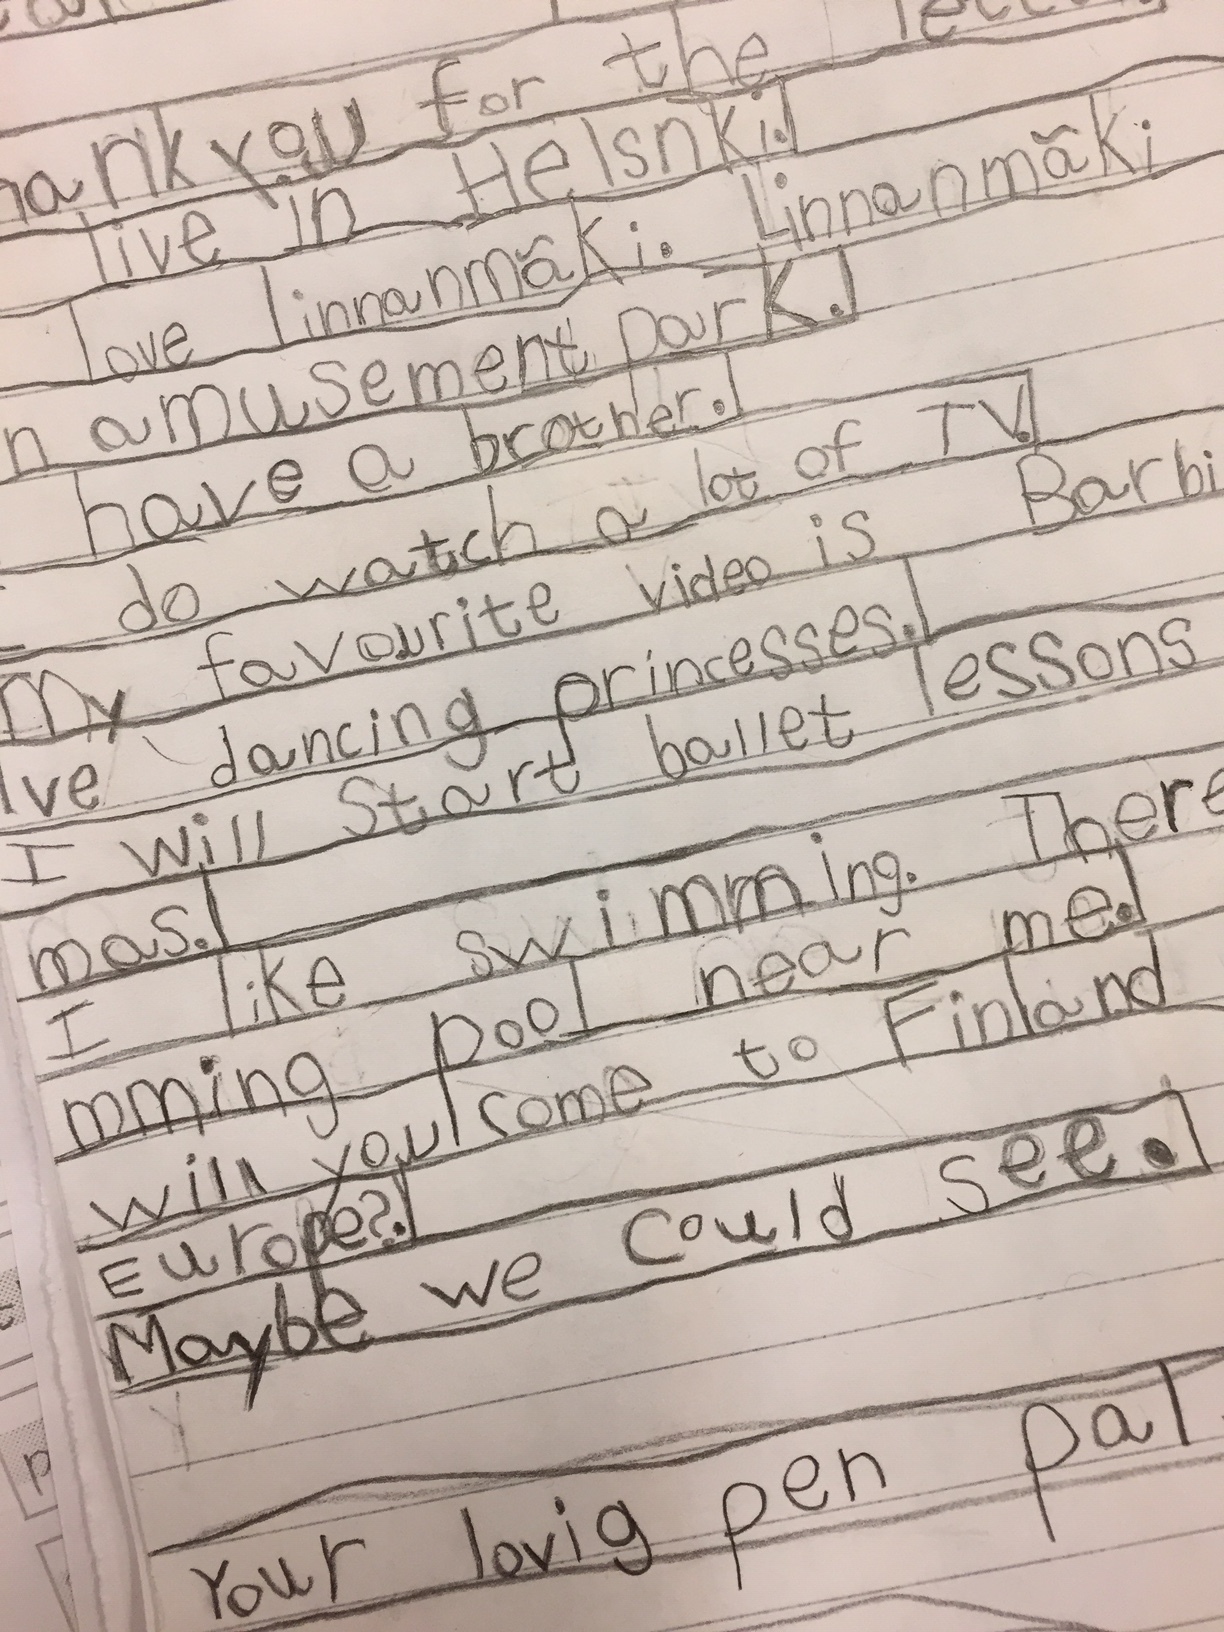 hank you for the letter
live in Helsnki.
love linnanmäki. Linnanmäki
n amusement park.
have a brother.
I do watch a lot of TV.
My favourite video is Barbi
lve dancing princesses.
I will start ballet lessons
mas.
I like swimming. There
mming pool near me.
will you come to Finland
Europe?.
Maybe we could see.
Your lovig pen pal.